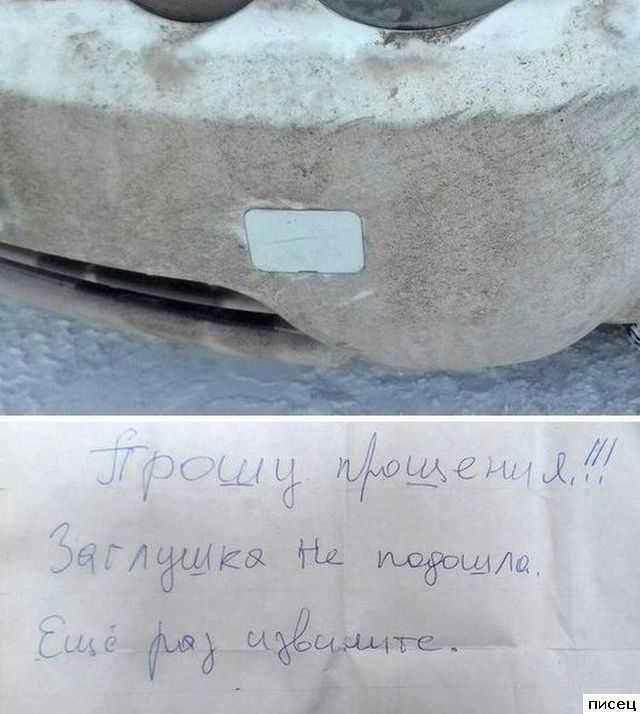 Прошу прощения!!!
Заглушка не подошла.
Ещё раз извините.
писец